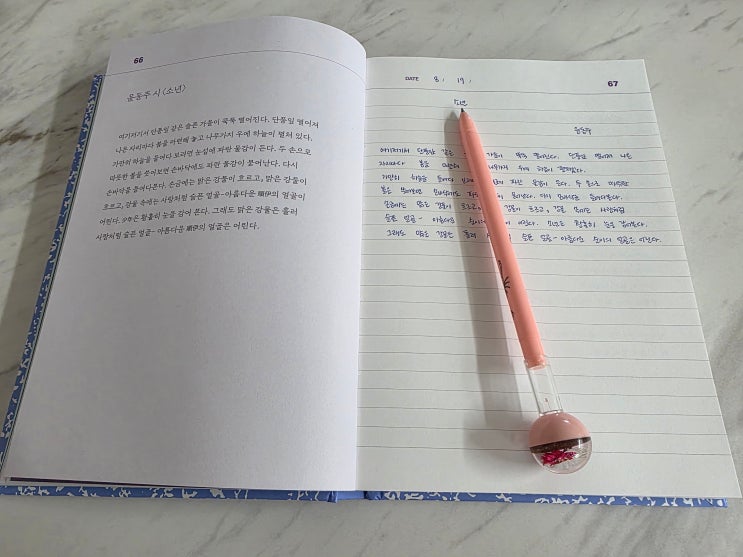 66
윤동주 시 <소년>
여기저기서 단풍잎 같은 슬픈 가을이 뚝뚝 떨어진다. 단풍잎 떨어져
나온 자리마다 봄을 마련해 놓고 나뭇가지 우에 하늘이 펼쳐 있다.
가만히 하늘을 들여다 보려면 눈섭에 파란 물감이 든다. 두 손으로
따뜻한 볼을 쏫어보면 손바닥에도 파란 물감이 묻어난다. 다시
손바닥을 들여다본다. 손금에는 맑은 강물이 흐르고, 맑은 강물이
흐르고, 강물 속에는 사랑처럼 슬픈 얼골—아름다운 順伊의 얼골이
어린다. 少年은 황홀히 눈을 감어 본다. 그래도 맑은 강물은 흘러
사랑처럼 슬픈 얼골— 아름다운 順伊의 얼골은 어린다.
DATE 8 / 19 /
67
소년
윤동주
여기저기서 단풍잎 같은 가을이 뚝뚝 떨어진다. 단풍잎 떨어져 나온
자리마다 봄을 나뭇가지 우에 하늘이
가만히 하늘을 들여다 파란 물감이 든다. 두 손으로 따뜻한
볼을 묻어난다. 다시 손바닥을 들여다본다.
손금에는 맑은 강물이 흐르고, 강물이 흐르고, 강물 속에는 사랑처럼
슬픈 얼골- 아름다운 어린다. 소년은 황홀히 눈을 감어본다.
그래도 맑은 강물은 흘러 슬픈 얼골-아름다운 순이의 얼골은 어린다.